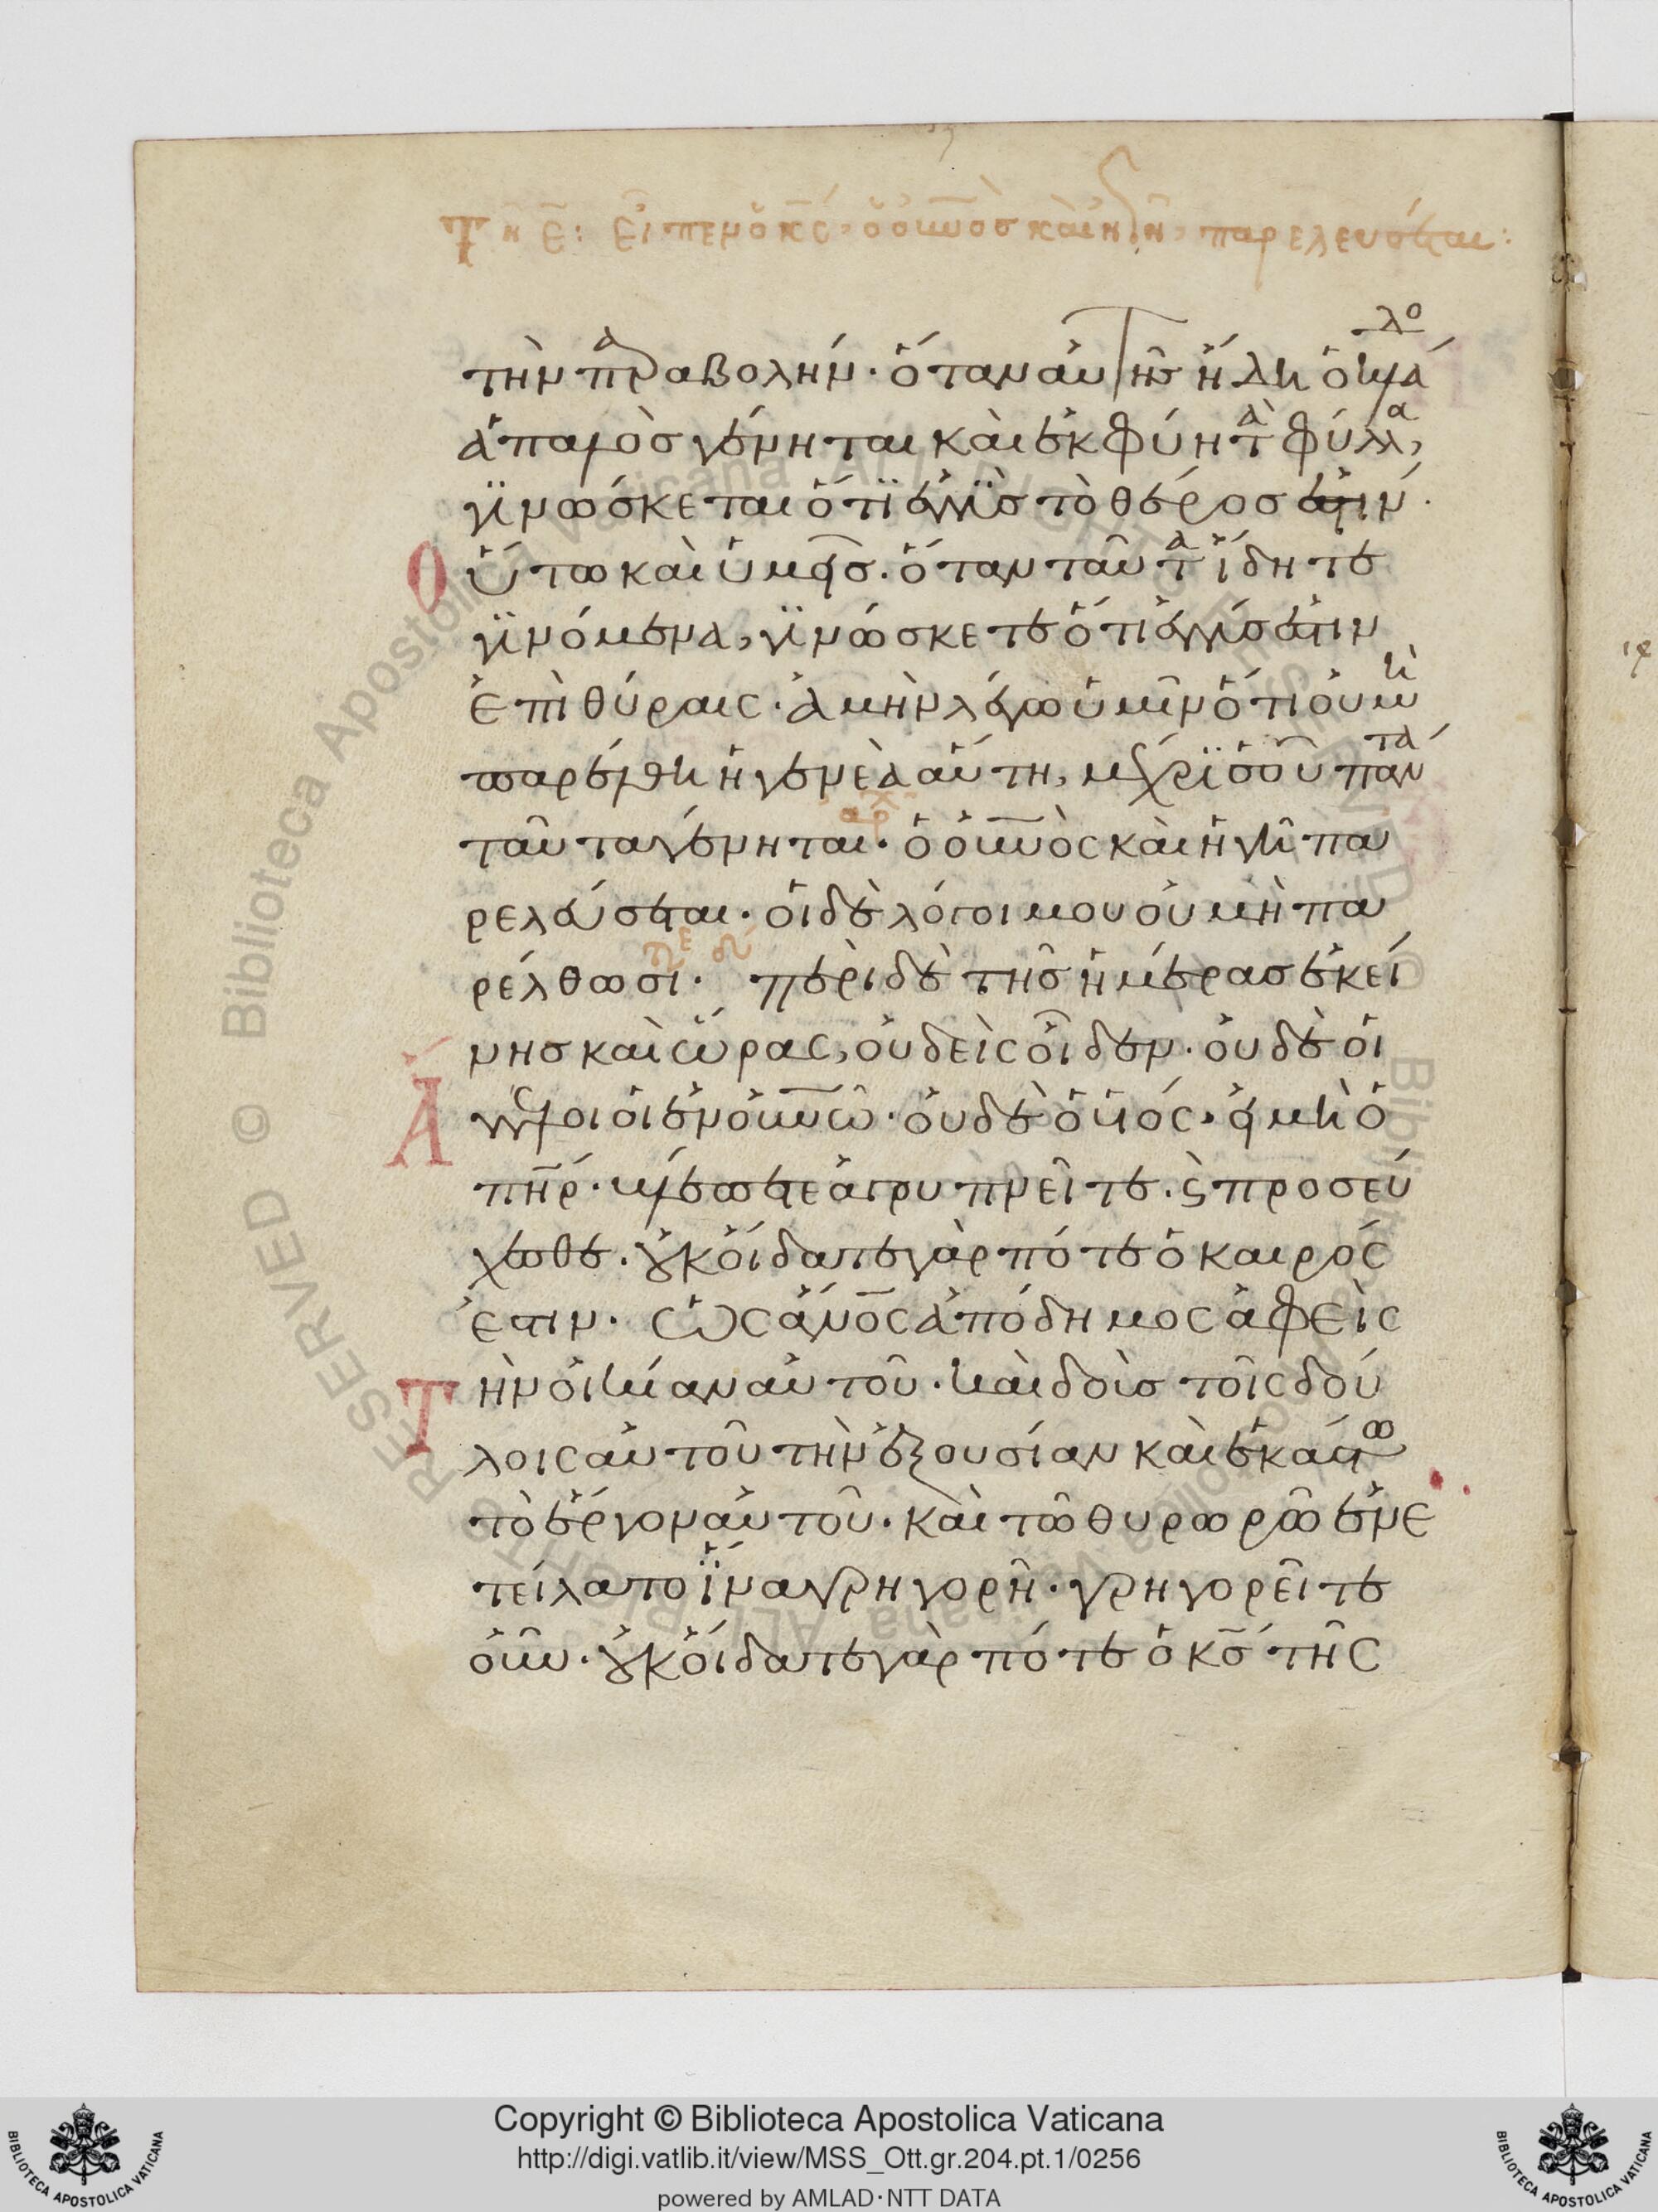 Τῆ ε̄: εἶπεν ὁ κς̄· ὁ οὐνὸς καὶ ἡ γῆ, παρελεύσεται:
τὴν πραβολήν· ὅταν αὐτῆς ἤδη ὁ κλά
δος
ἁπαλὸσ γένηται καὶ ἐκφύη τὰ φύλλα,
γϊνώσκεται ὅτϊ ἐγγὺσ τὸ θέροσ ἐστίν·
Οὕτω καὶ ὑμεῖσ· ὅταν ταῦτα ἴδητε
γϊνόμενα, γϊνώσκετε ὅτι ἐγγύσ ἐστιν
ἐπὶ θύραις· ἀμὴν λέγω ὑμῖν ὅτι οὐ μὴ
παρέλθη ἡ γενεὰ αὕτη, μέχρϊσ οὗ πάντα
αρχ
ταῦτα γένηται· ὁ οὐνὸς καὶ ἡ γῆ πα
ρελεύσεται· οἱ δὲ λόγοι μου οὐ μὴ πα
τελ
ρέλθωσι· περὶ δὲ τῆσ ἡμέρασ ἐκεί
νησ καὶ ὥρας, οὐδεὶς οἶδεν· οὐδὲ οἱ
Ἄγγελοι οἱ ἐν οὐνῶ· οὐδὲ ὁ υἱός· εἰ μὴ ὁ
πηρ̄· βλέπετε ἀγρυπνεῖτε· ϗ προσεύ
χεσθε· οὐκ οἴδατε γὰρ πότε ὁ καιρός
ἐστιν· ὡς ἄνος̄ ἀπόδημος ἀφεὶς
Τὴν οἰκίαν αὐτοῦ· καὶ δοὺσ τοῖς δού
λοις αὐτοῦ τὴν ἐξουσίαν καὶ ἑκάστω
τὸ ἔργον αὐτοῦ· καὶ τῶ θυρωρῶ ἐνε
τείλατο ἵνα γρηγορῆ· γρηγορεῖτε
οὖν· οὐκ οἴδατε γὰρ πότε ὁ κσ̄ τῆς
Copyright © Biblioteca Apostolica Vaticana
http://digi.vatlib.it/view/MSS_Ott.gr.204.pt.1/0256
powered by AMLAD·NTT DATA